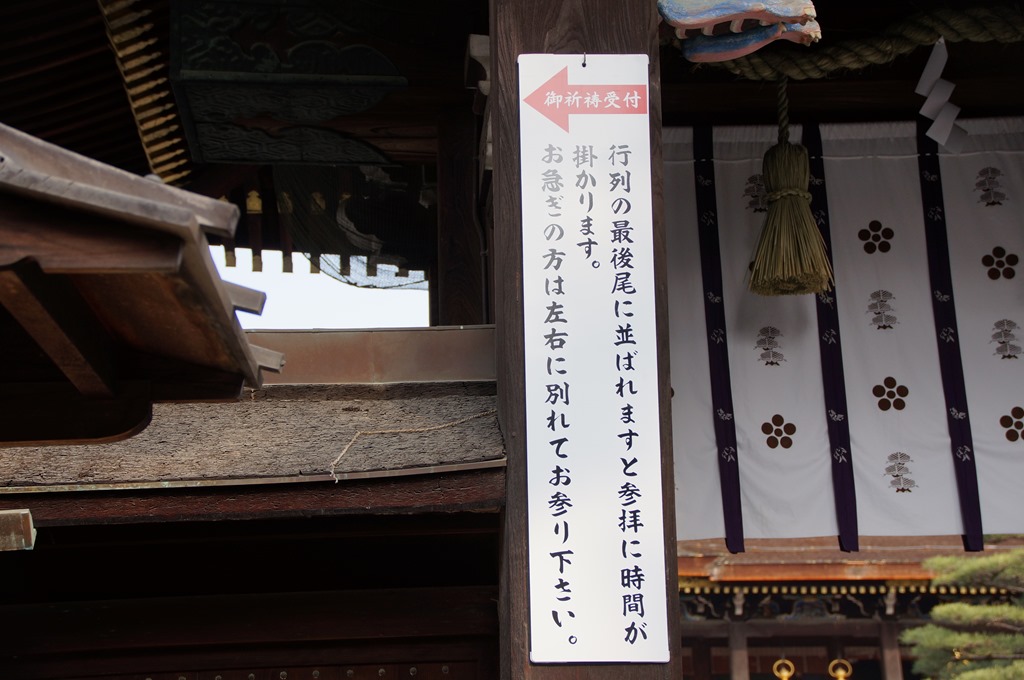 御祈祷受付
行列の最後尾に並ばれますと参拝に時間が
掛かります。
お急ぎの方は左右に別れてお参り下さい。